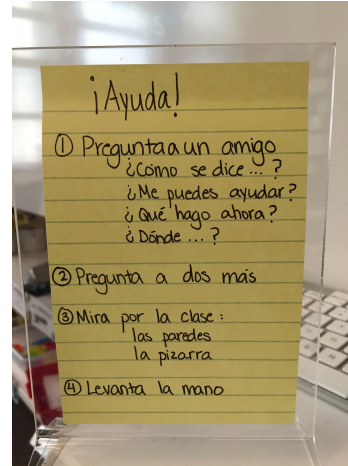 ¡Ayuda!
① Pregunta a un amigo
¿Cómo se dice ... ?
¿Me puedes ayudar?
¿Qué hago ahora?
¿Dónde ... ?
② Pregunta a dos más
③ Mira por la clase:
las paredes
la pizarra
④ Levanta la mano